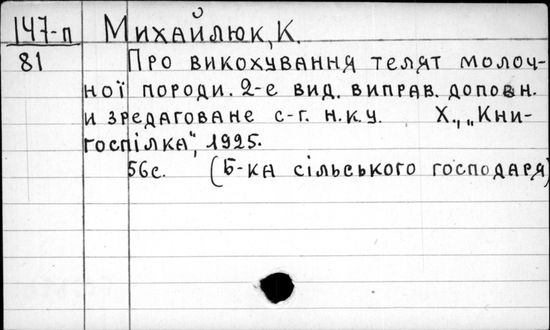 147-п Михайлюк, К.
81 Про викохування телят молоч-
ної породи. 2-е вид. виправ. доповн.
и зредаговане с-г. н.к.у. Х., „Кни-
госпілка“, 1925.
56с. (Б-ка сільського господаря)